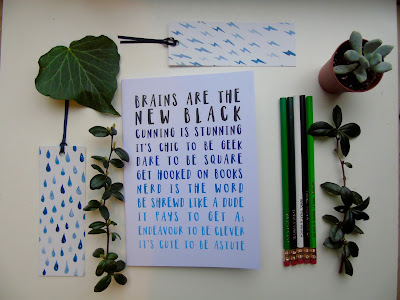 BRAINS ARE THE
NEW BLACK
CUNNING IS STUNNING
IT'S CHIC TO BE GEEK
DARE TO BE SQUARE
GET HOOKED ON BOOKS
NERD IS THE WORD
BE SHREWD LIKE A DUDE
IT PAYS TO GET As
ENDEAVOUR TO BE CLEVER
IT'S CUTE TO BE ASTUTE